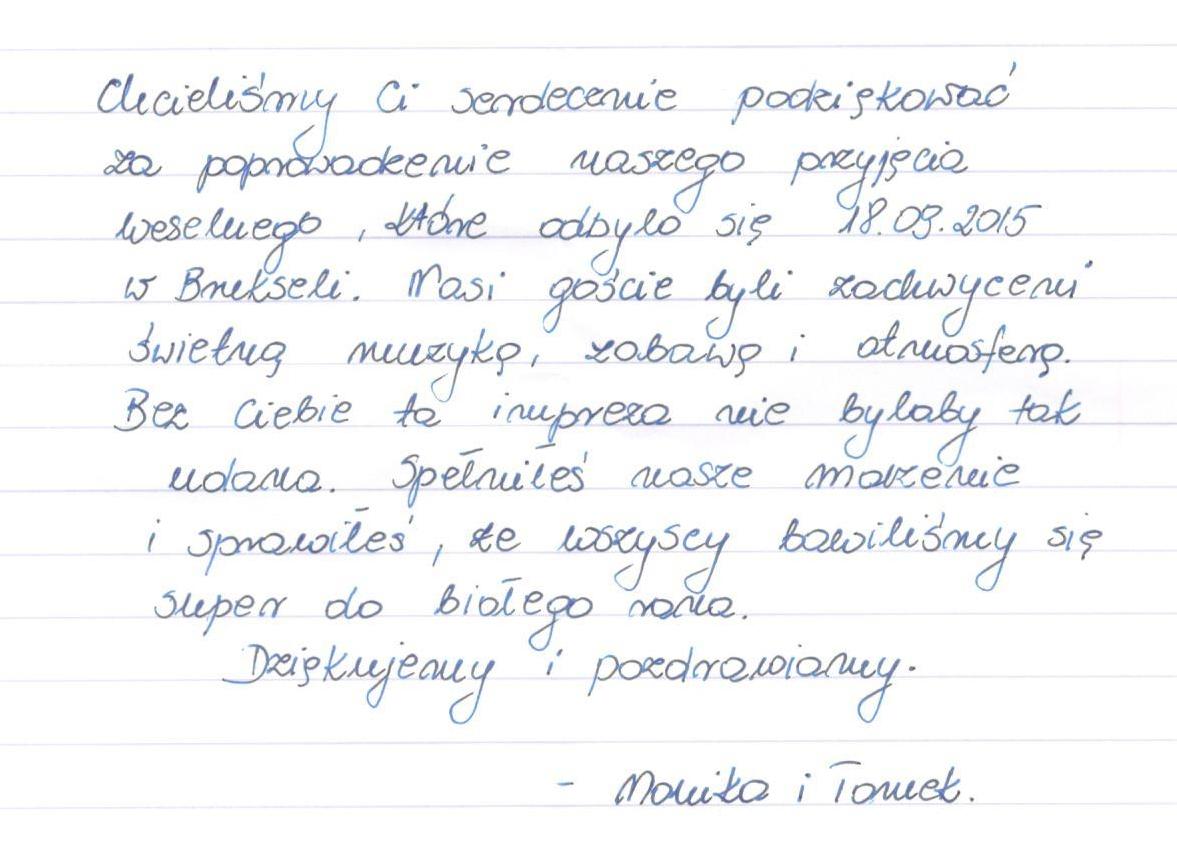 Chcieliśmy Ci serdecznie podziękować
za poprowadzenie naszego przyjęcia
weselnego, które odbyło się 18.09.2015
w Brukseli. Nasi goście byli zachwyceni
świetną muzyką, zabawą i atmosferą.
Bez Ciebie ta impreza nie byłaby tak
udana. Spełniłeś nasze marzenie
i sprawiłeś, że wszyscy bawiliśmy się
super do białego rana.
Dziękujemy i pozdrawiamy.
- Monika i Tomek.